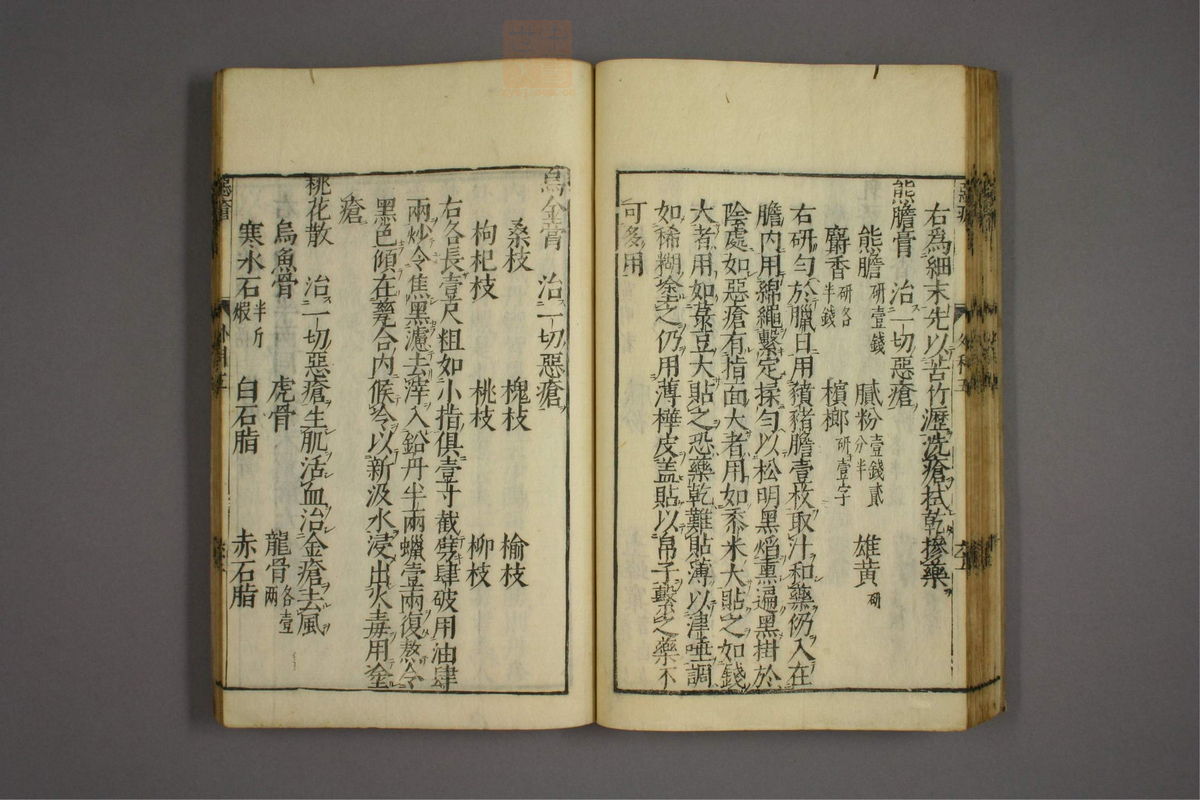 右爲細末先以苦竹瀝洗瘡拭乾摻藥
熊膽膏 治一切惡瘡
熊膽研壹錢 膩粉壹錢貳分半 雄黃研
麝香研各半錢 檳榔研壹字
右研勻於臘日用豶豬膽壹枚取汁和藥仍入在
膽內用綿繩繫定揉勻以松明黑焰熏遍黑掛於
陰處如惡瘡有指面大者用如黍米大貼之如錢
大者用如菉豆大貼之恐藥乾難貼薄以津唾調
如稀糊塗之仍用薄樺皮蓋貼以帛子繫之藥不
可多用
烏金膏 治一切惡瘡
桑枝 槐枝 榆枝
枸杞枝 桃枝 柳枝
右各長壹尺粗如小指俱壹寸截劈肆破用油肆
兩炒令焦黑濾去滓入鉛丹半兩蠟壹兩復熬令
黑色傾在甆合內候冷以新汲水浸出火毒用塗
瘡
桃花散 治一切惡瘡生肌活血治金瘡去風
烏魚骨 虎骨 龍骨各壹兩
寒水石半斤煅 白石脂 赤石脂
惡瘡